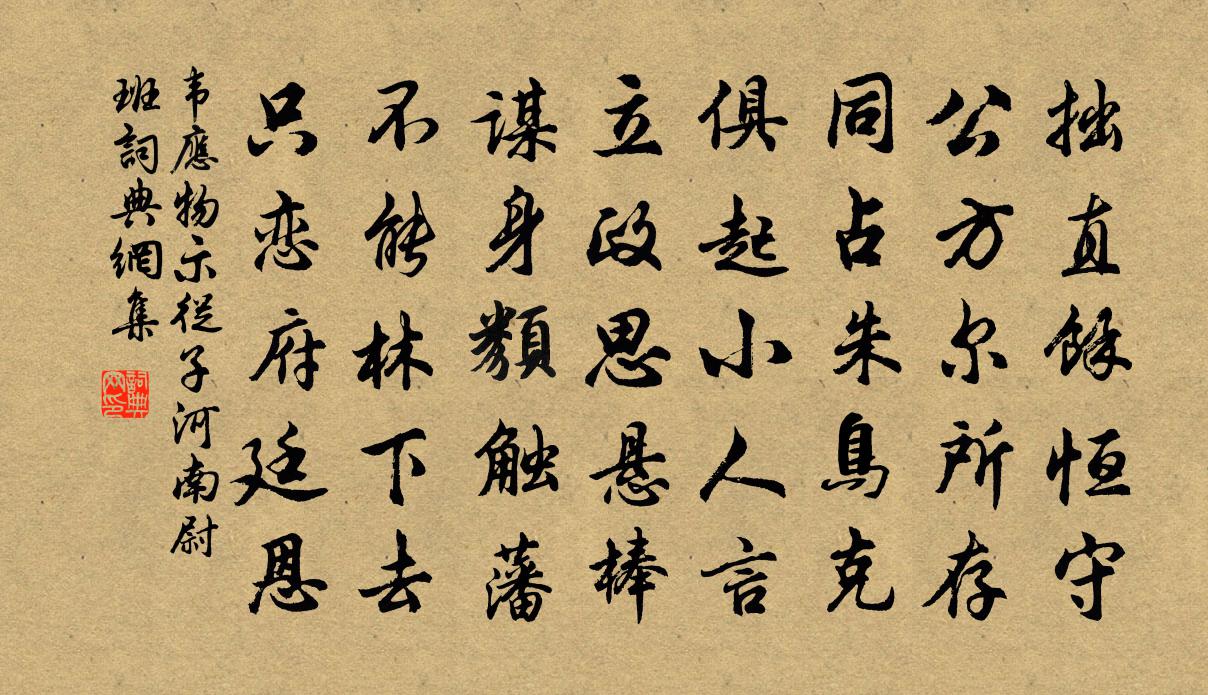 拙直餘恒守
公方尔所存
同占朱鳥克
俱起小人言
立政思悬棒
谋身類触藩
不能林下去
只恋府廷恩
韦應物示從子河南尉
班詞典網集
詞典
网印